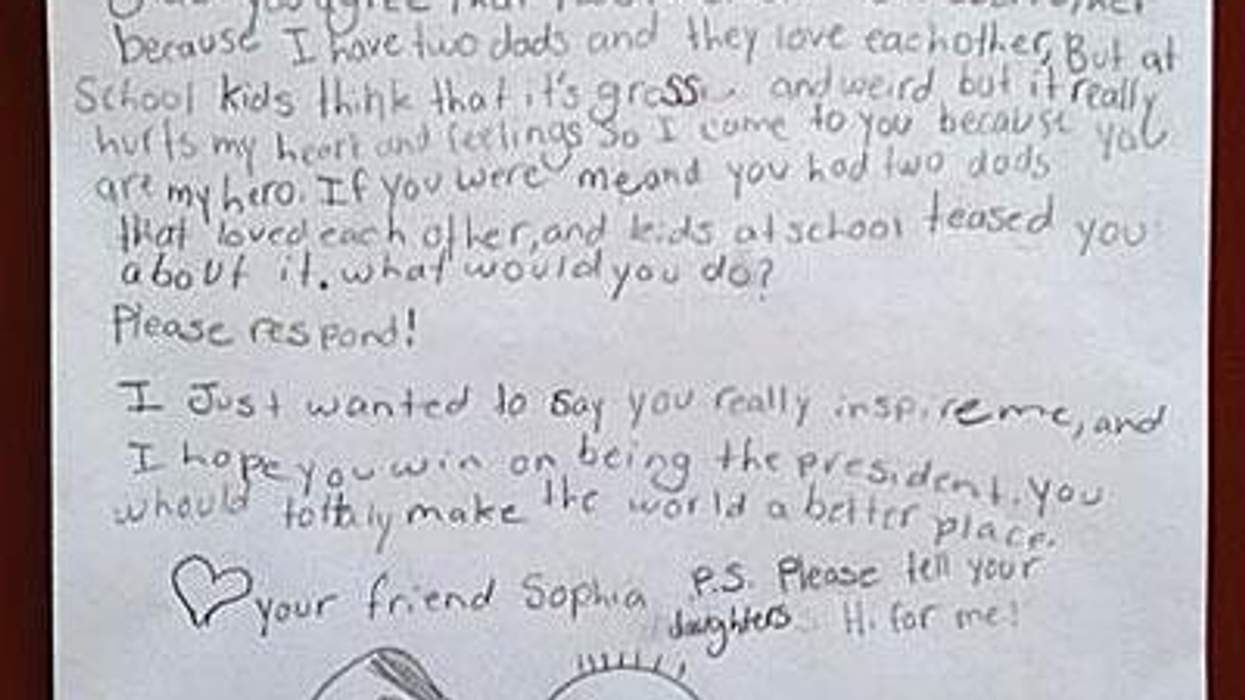 you agree that
because I have two dads and they love eachother, But at
School kids think that it's gross and weird but it really
hurts my heart and feelings So I come to you because you
are my hero. If you were me and you had two dads
that loved each other, and kids at school teased you
about it. what would you do?
Please respond!
I Just wanted to say you really inspire me, and
I hope you win on being the president. you
whould totttaly make the world a better place.
your friend Sophia
P.S. Please tell your
daughters Hi for me!